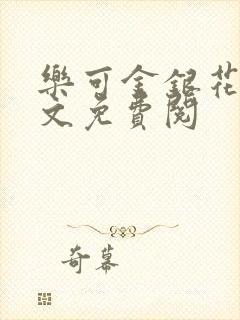 樂可金銀花
文免費閱
奇幕